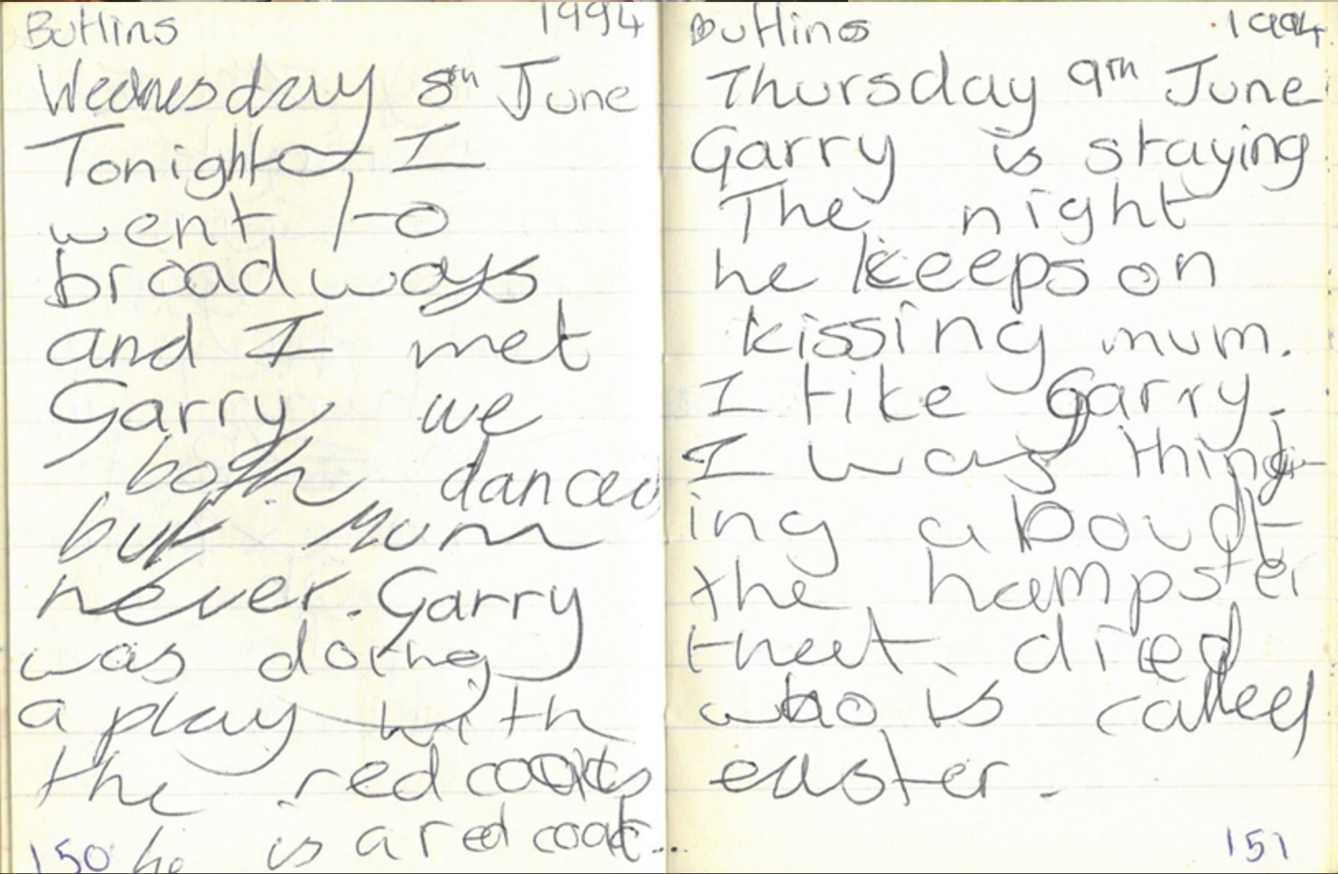 Butlins 1994
Wednesday 8th June
Tonight I
went to
broadways
and I met
Garry we
both danced
but Mum
never. Garry
was doing
a play with
the red coats
150 he is a red coat...
Butlins 1994
Thursday 9th June
Garry is staying
The night
he keeps on
kissing mum.
I like Garry.
I was thing-
ing about
the hampster
that died
who is called
easter.
151